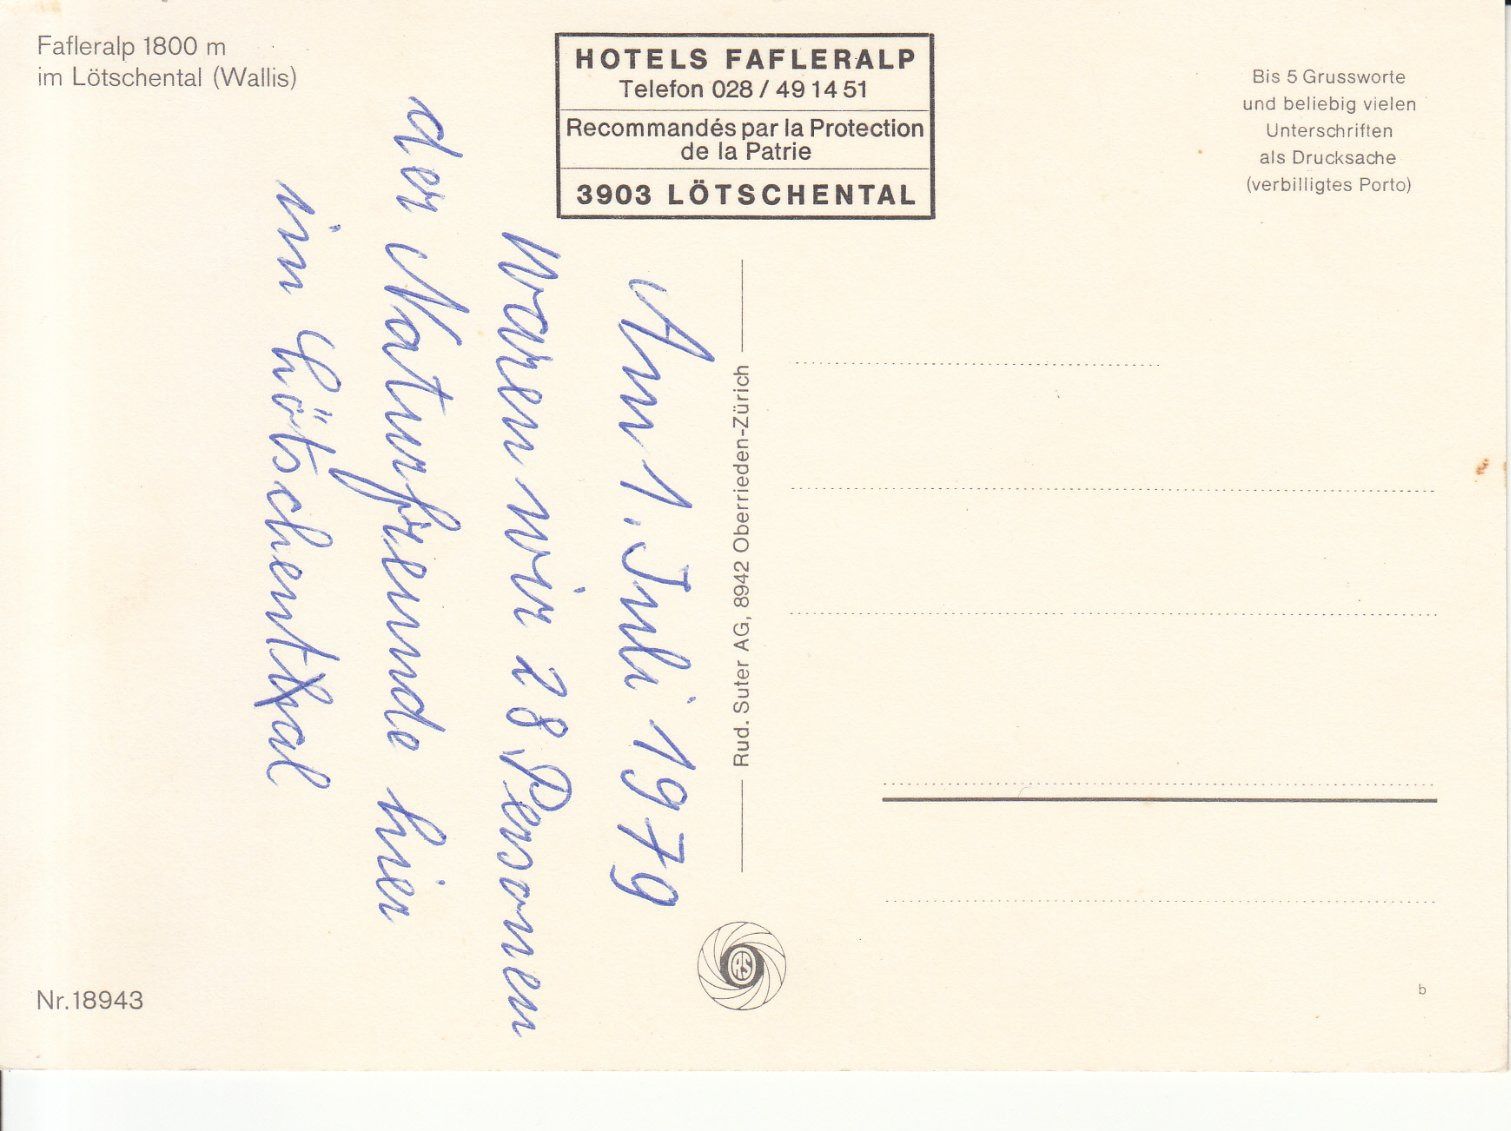 Fafleralp 1800 m
im Lötschental (Wallis)
HOTELS FAFLERALP
Telefon 028 / 49 14 51
Recommandés par la Protection
de la Patrie
3903 LÖTSCHENTAL
Bis 5 Grussworte
und beliebig vielen
Unterschriften
als Drucksache
(verbilligtes Porto)
Am 1. Juli 1979
waren wir 28 Personen
der Naturfreunde hier
im Lötschenthal
Rud. Suter AG, 8942 Oberrieden-Zürich
Nr. 18943
b